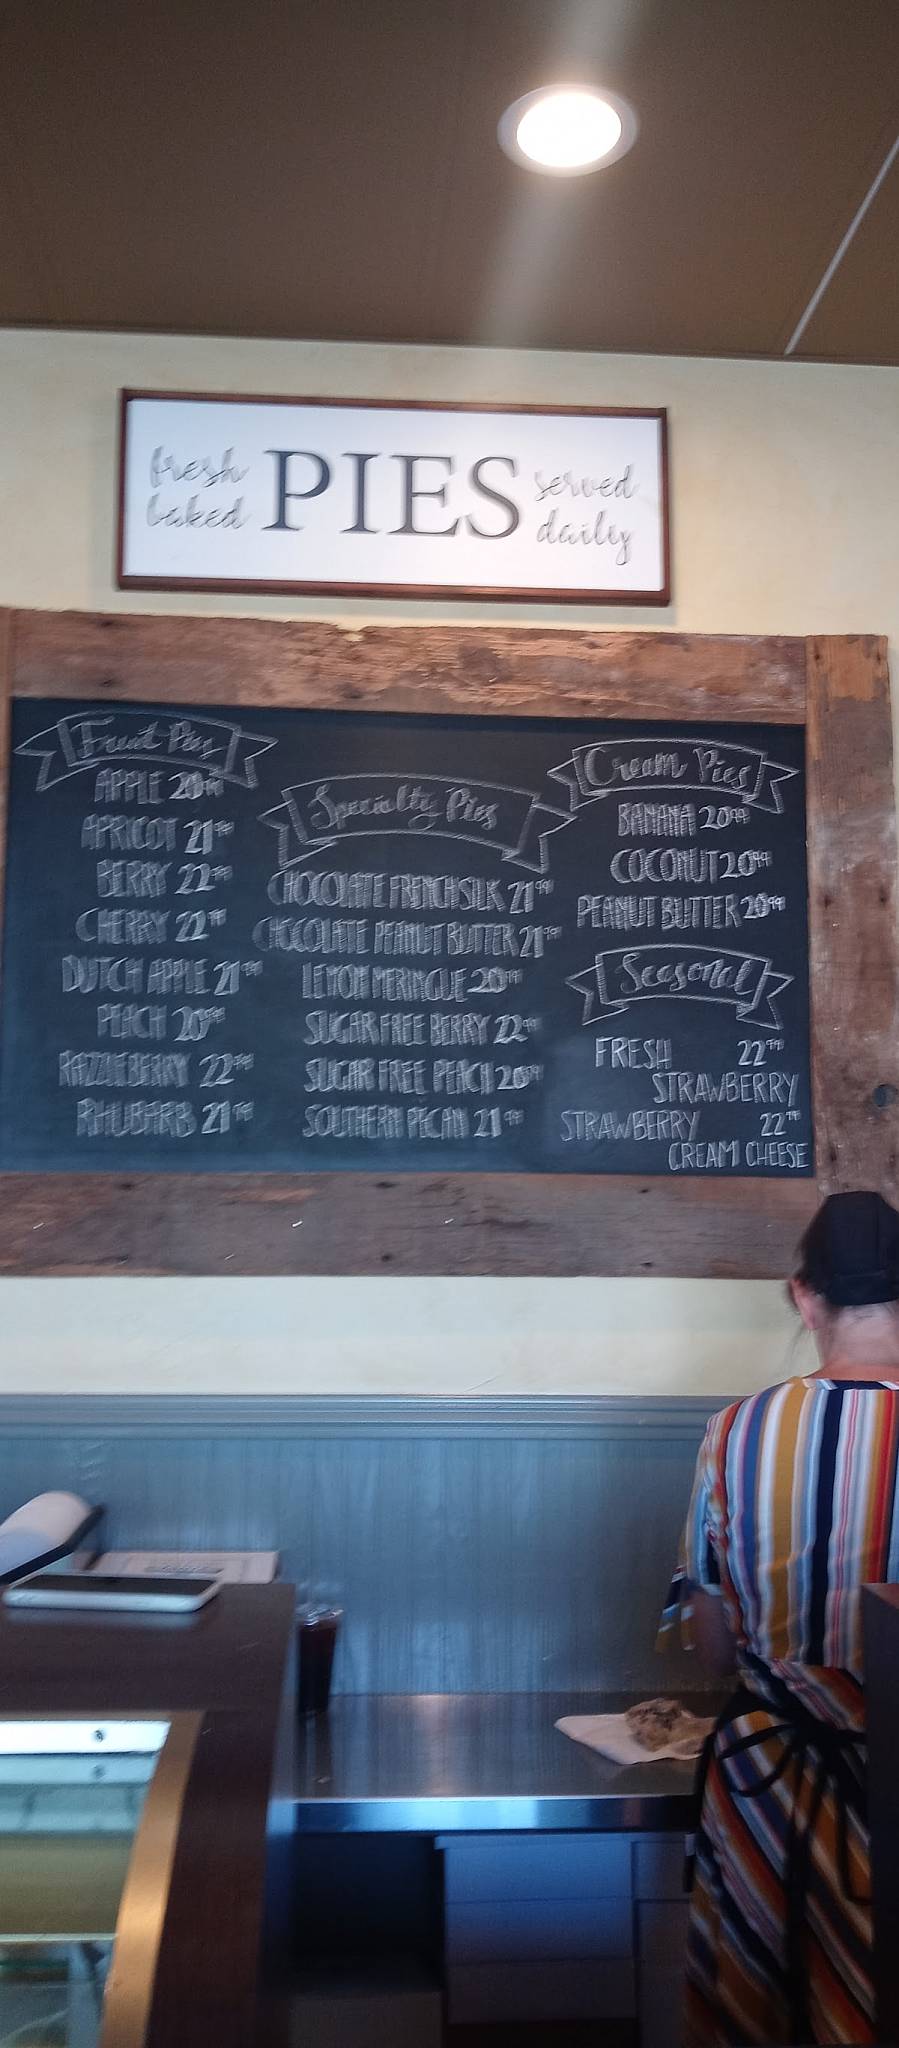 fresh baked PIES served daily
Fruit Pies
APPLE 20.99
APRICOT 21.99
BERRY 22.99
CHERRY 22.99
DUTCH APPLE 21.99
PEACH 20.99
RAZZLEBERRY 22.99
RHUBARB 21.99
Specialty Pies
CHOCOLATE FRENCH SILK 21.99
CHOCOLATE PEANUT BUTTER 21.99
LEMON MERINGUE 20.99
SUGAR FREE BERRY 22.99
SUGAR FREE PEACH 20.99
SOUTHERN PECAN 21.99
Cream Pies
BANANA 20.99
COCONUT 20.99
PEANUT BUTTER 20.99
Seasonal
FRESH 22.99
STRAWBERRY
STRAWBERRY 22.99
CREAM CHEESE